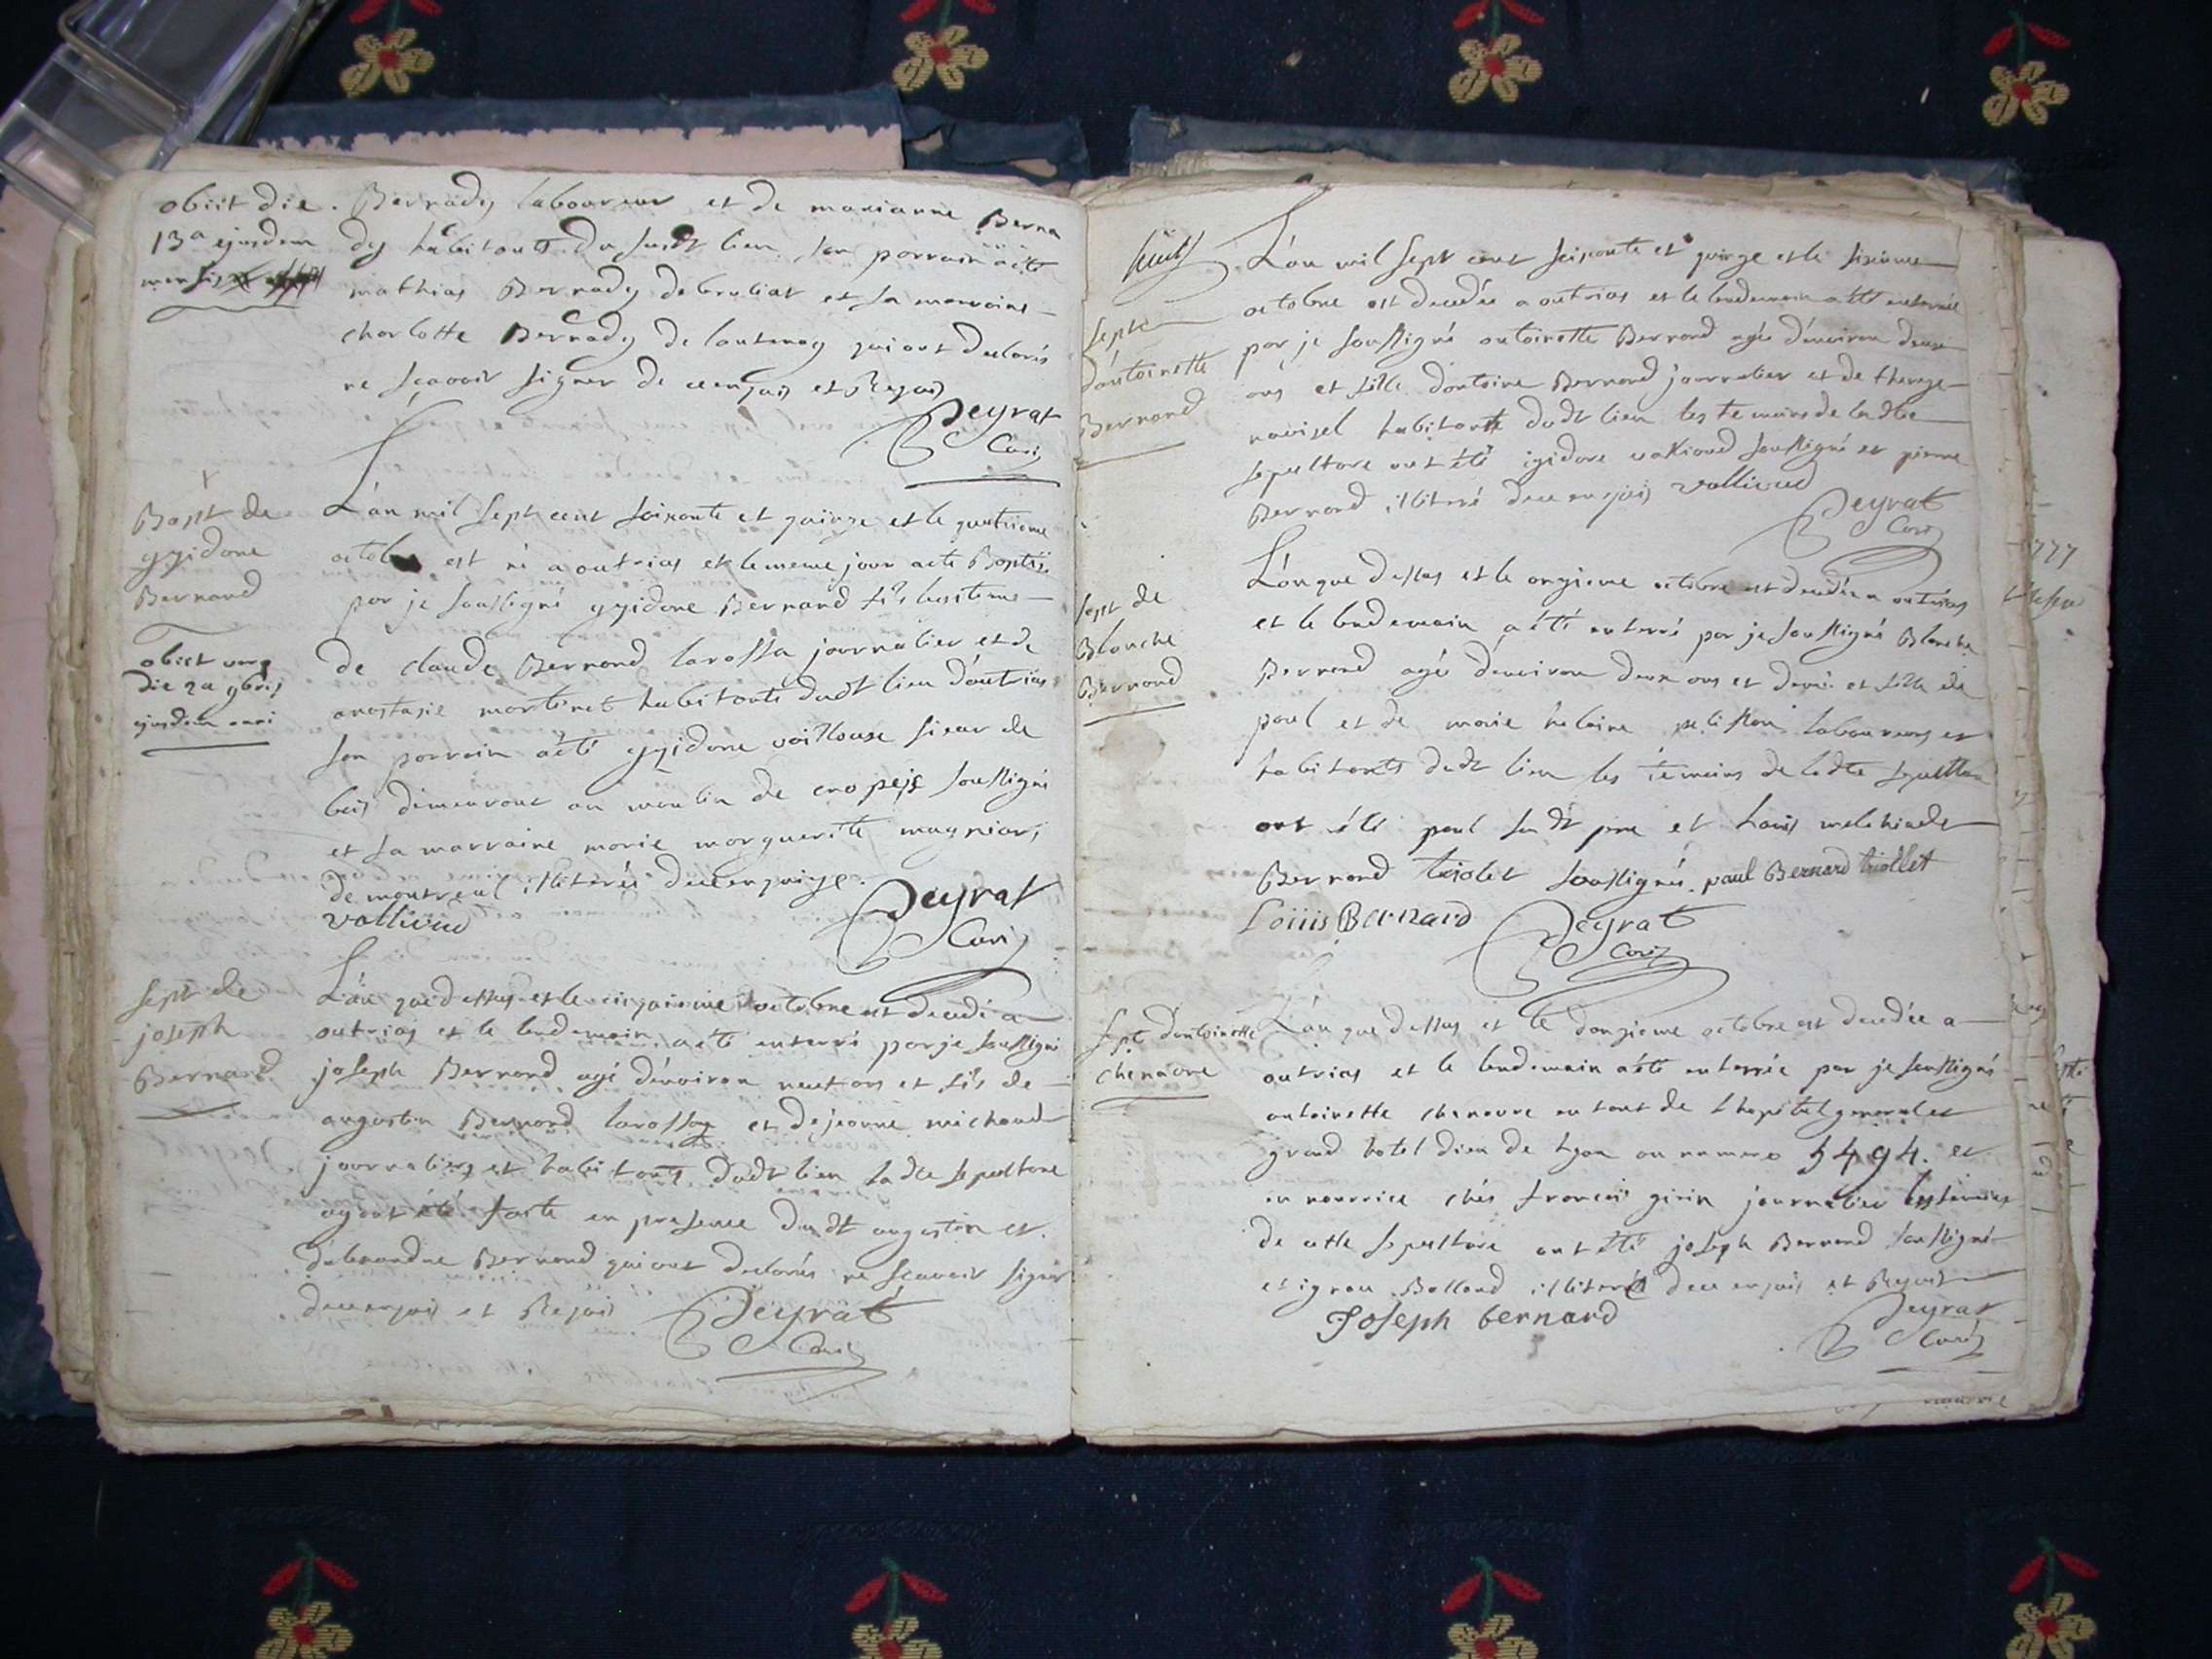 obiit die
13a ejusdem
mensis
Bernady laboureur et de marianne Berna
dy habitants du susdt lieu, son parrain a été
mathias Bernady et sa marraine
charlotte Bernady de lantenay qui ont declarés
ne sçavoir signer de ce enquis et Requis
Peyrat
Curé
Bapt de
ygidone
Bernard
obiit
die 2a 9bris
ejusdem anni
L'an mil sept cent soixante et quinze et le quatrieme
octobre est né a outrias et le meme jour a eté Baptisé
par je soussigné ygidone Bernard fils legitime
de claude Bernard larossa journalier et de
anastasie martinet habitants dudt lieu d'outrias
son parrain a été ygidone vaillouse sieur de
demeurant au moulin de soussigné
et sa marraine marie marguerite magniard
de montreal illiterée de ce enquise.
vallioud
Peyrat
Curé
sept de
joseph
Bernard
L'an que dessus et le cinquieme octobre est decedé a
outrias et le lendemain a été enterré par je soussigné
joseph Bernard agé d'environ neuf ans et fils de
augustin Bernard larossaz et de jeanne michaud
journaliers et habitants dudt lieu ladte sepulture
ayant été faite en presence dudt augustin et
Bernard qui ont declarés ne sçavoir signer
de ce enquis et Requis
Peyrat
Curé
L'an mil sept cent soixante et quinze et le sixieme
octobre est decedée a outrias et le lendemain a été enterrée
par je soussigné antoinette Bernard agée d'environ deux
ans et fille d'antoine Bernard journalier et de thereze
ravisel habitants dudt lieu les temoins de ladte
sepulture ont été igidore vallioud soussigné et pierre
Bernard illiteré de ce enquis vallioud
Peyrat
Curé
sept
d'antoinette
Bernard
sept de
Blanche
Bernard
L'an que dessus et le onzieme octobre est decedée a outrias
et le lendemain a été enterré par je soussigné Blanche
Bernard agée d'environ deux ans et demi et fille de
paul et de marie helaine pelisson laboureurs et
habitants dudt lieu les temoins de ladte sepulture
ont été paul susdt pere et Louis melchiade
Bernard triolet soussignés. paul Bernard triollet
Loüis Bernard
Peyrat
Curé
sept d'antoinette
chenavre
L'an que dessus et le douzieme octobre est decedée a
outrias et le lendemain a été enterrée par je soussigné
antoinette chenavre enfant de l'hopital general et
grand hotel dieu de Lyon au numero 5494. et
en nourrice chés francois girin journalier les témoins
de cette sepulture ont été joseph Bernard soussigné
et Balland illiteré de ce enquis et Requis
Joseph bernard
Peyrat
Curé
1777